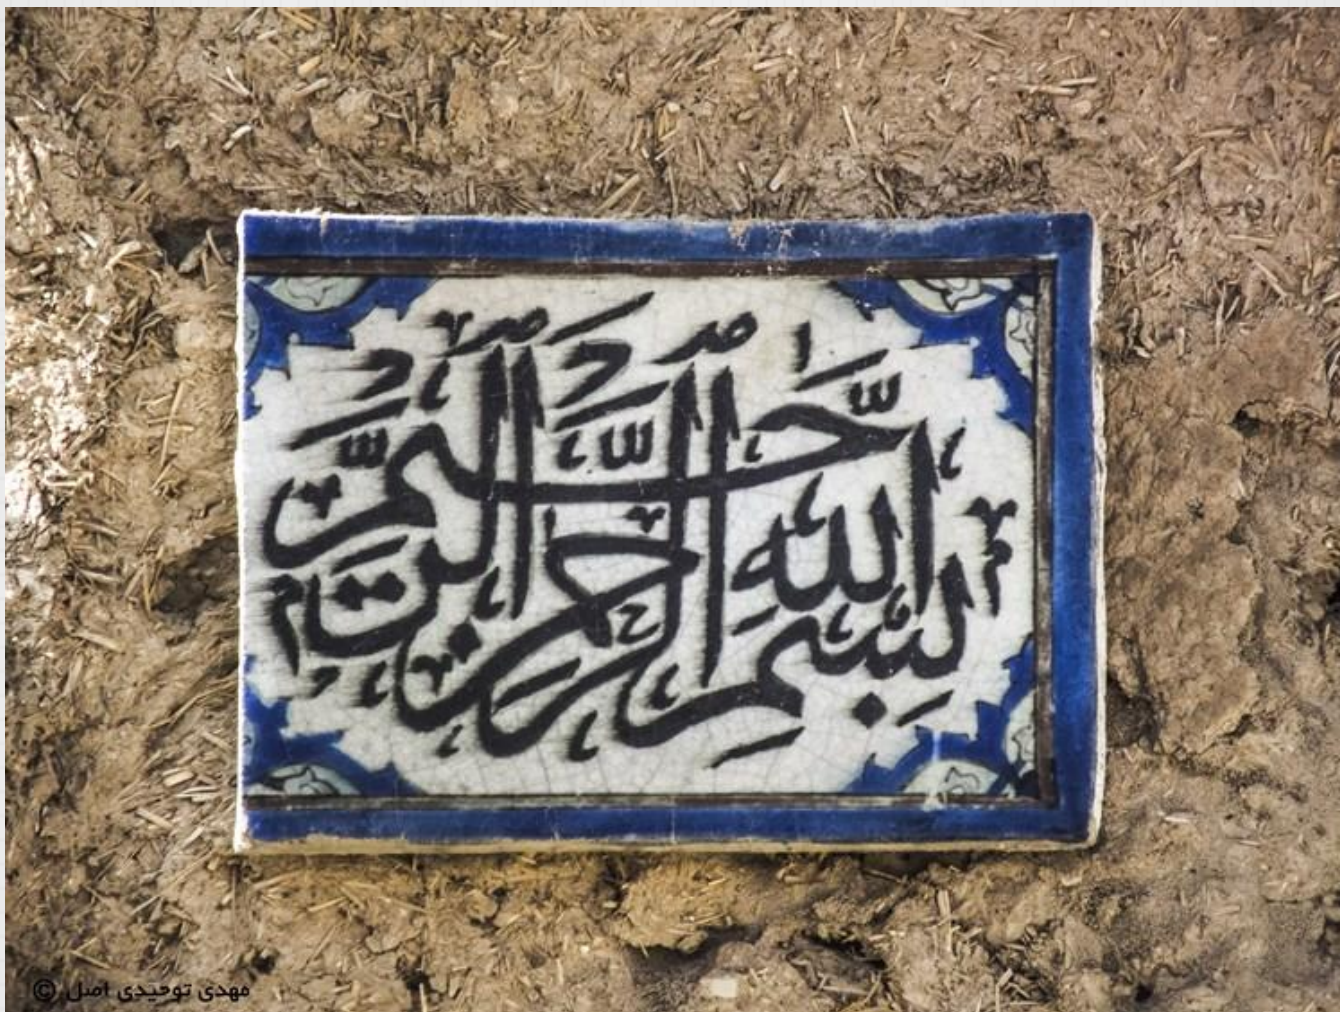 بسم الله الرحمن الرحیم
© مهدی توحیدی اصل